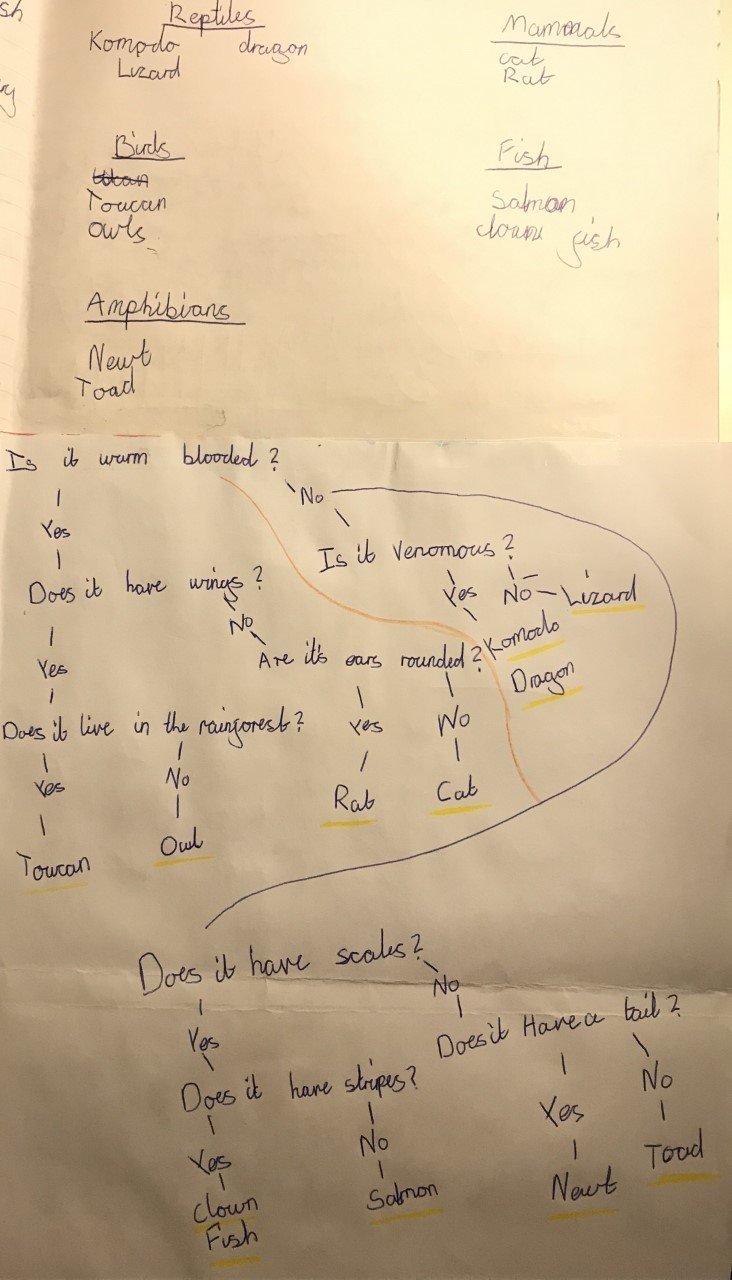 sh
Reptiles
Komodo dragon
Lizard
Mammals
cat
Rat
Birds
Toucan
owls
Fish
Salmon
clown fish
Amphibians
Newt
Toad
Is it warm blooded?
No
Yes
Is it Venomous?
Yes
No
Lizard
Komodo
Dragon
Does it have wings?
No
Are it's ears rounded?
Yes
No
Rat
Cat
Yes
Does it live in the rainforest?
Yes
No
Toucan
Owl
Does it have scales?
No
Yes
Does it Have a tail?
Yes
No
Newt
Toad
Does it have stripes?
Yes
No
Clown
Fish
Salmon